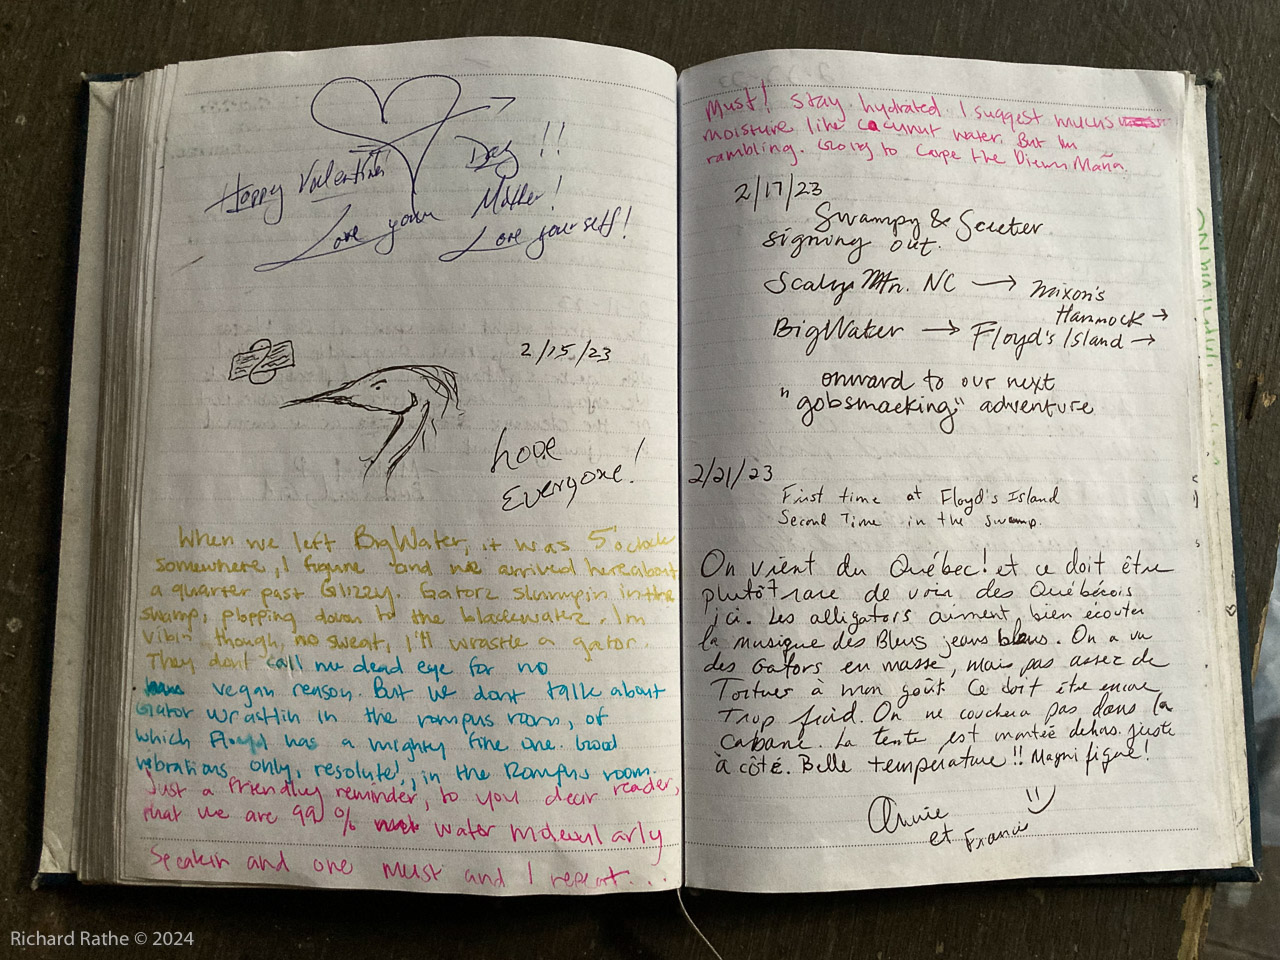 Happy Valentine's Day!!
Love your Mother!
Love yourself!
2/15/23
Love
Everyone!
When we left BigWater, it was 5 o'clock
somewhere, I figure and we arrived hereabout
a quarter past Glizzy. Gatorz slumpin in the
swamp, plopping down to the blackwater. Im
vibin though, no sweat, I'll wrastle a gator.
They dont call me dead eye for no
vegan reason. But we dont talk about
Gator wrastlin in the rompus room, of
which Floyd has a mighty fine one. Good
vibrations only, resolute!, in the Rompus room.
Just a friendly reminder, to you dear reader,
that we are 99% water molecularly
Speakin and one must and I repeat...
Must! Stay hydrated. I suggest mucus
moisture like cocunut water. But Im
rambling. Going to Carpe the Diem Maña.
2/17/23
Swampy & Scooter
signing out.
Scaly Mtn. NC → Mixon's
Hammock →
BigWater → Floyd's Island →
onward to our next
"gobsmacking" adventure
2/21/23
First time at Floyd's Island
Second Time in the swamp.
On vient du Québec! et ce doit être
plutôt rare de voir des Québécois
ici. Les alligators aiment bien écouter
la musique des Bleus jeans bleus. On a vu
des Gators en masse, mais pas assez de
Tortues à mon goût. Ce doit être encore
Trop froid. On ne couchera pas dans la
cabane. La tente est montée dehors juste
à côté. Belle température!! Magnifique!
Annie
et Francis
Richard Rathe © 2024